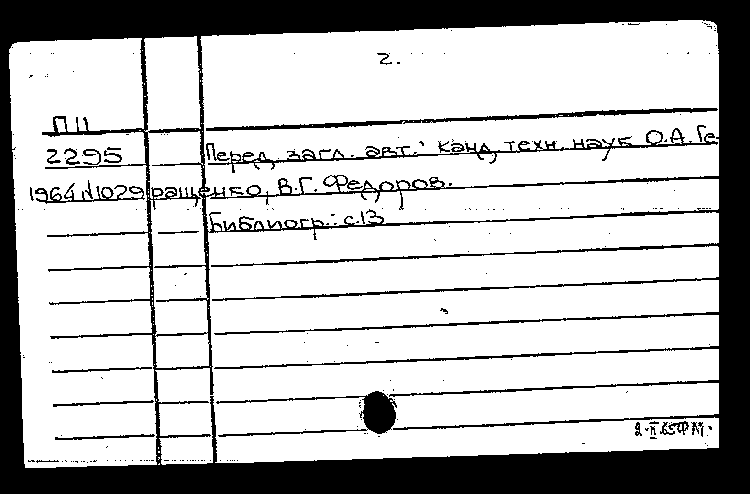 2.
П II
2295 Перед загл. авт.: канд. техн. наук О.А. Ге-
1964 №1029 ращенко, В.Г. Федоров.
Библиогр.: с.13
2.II.65 ФМ.